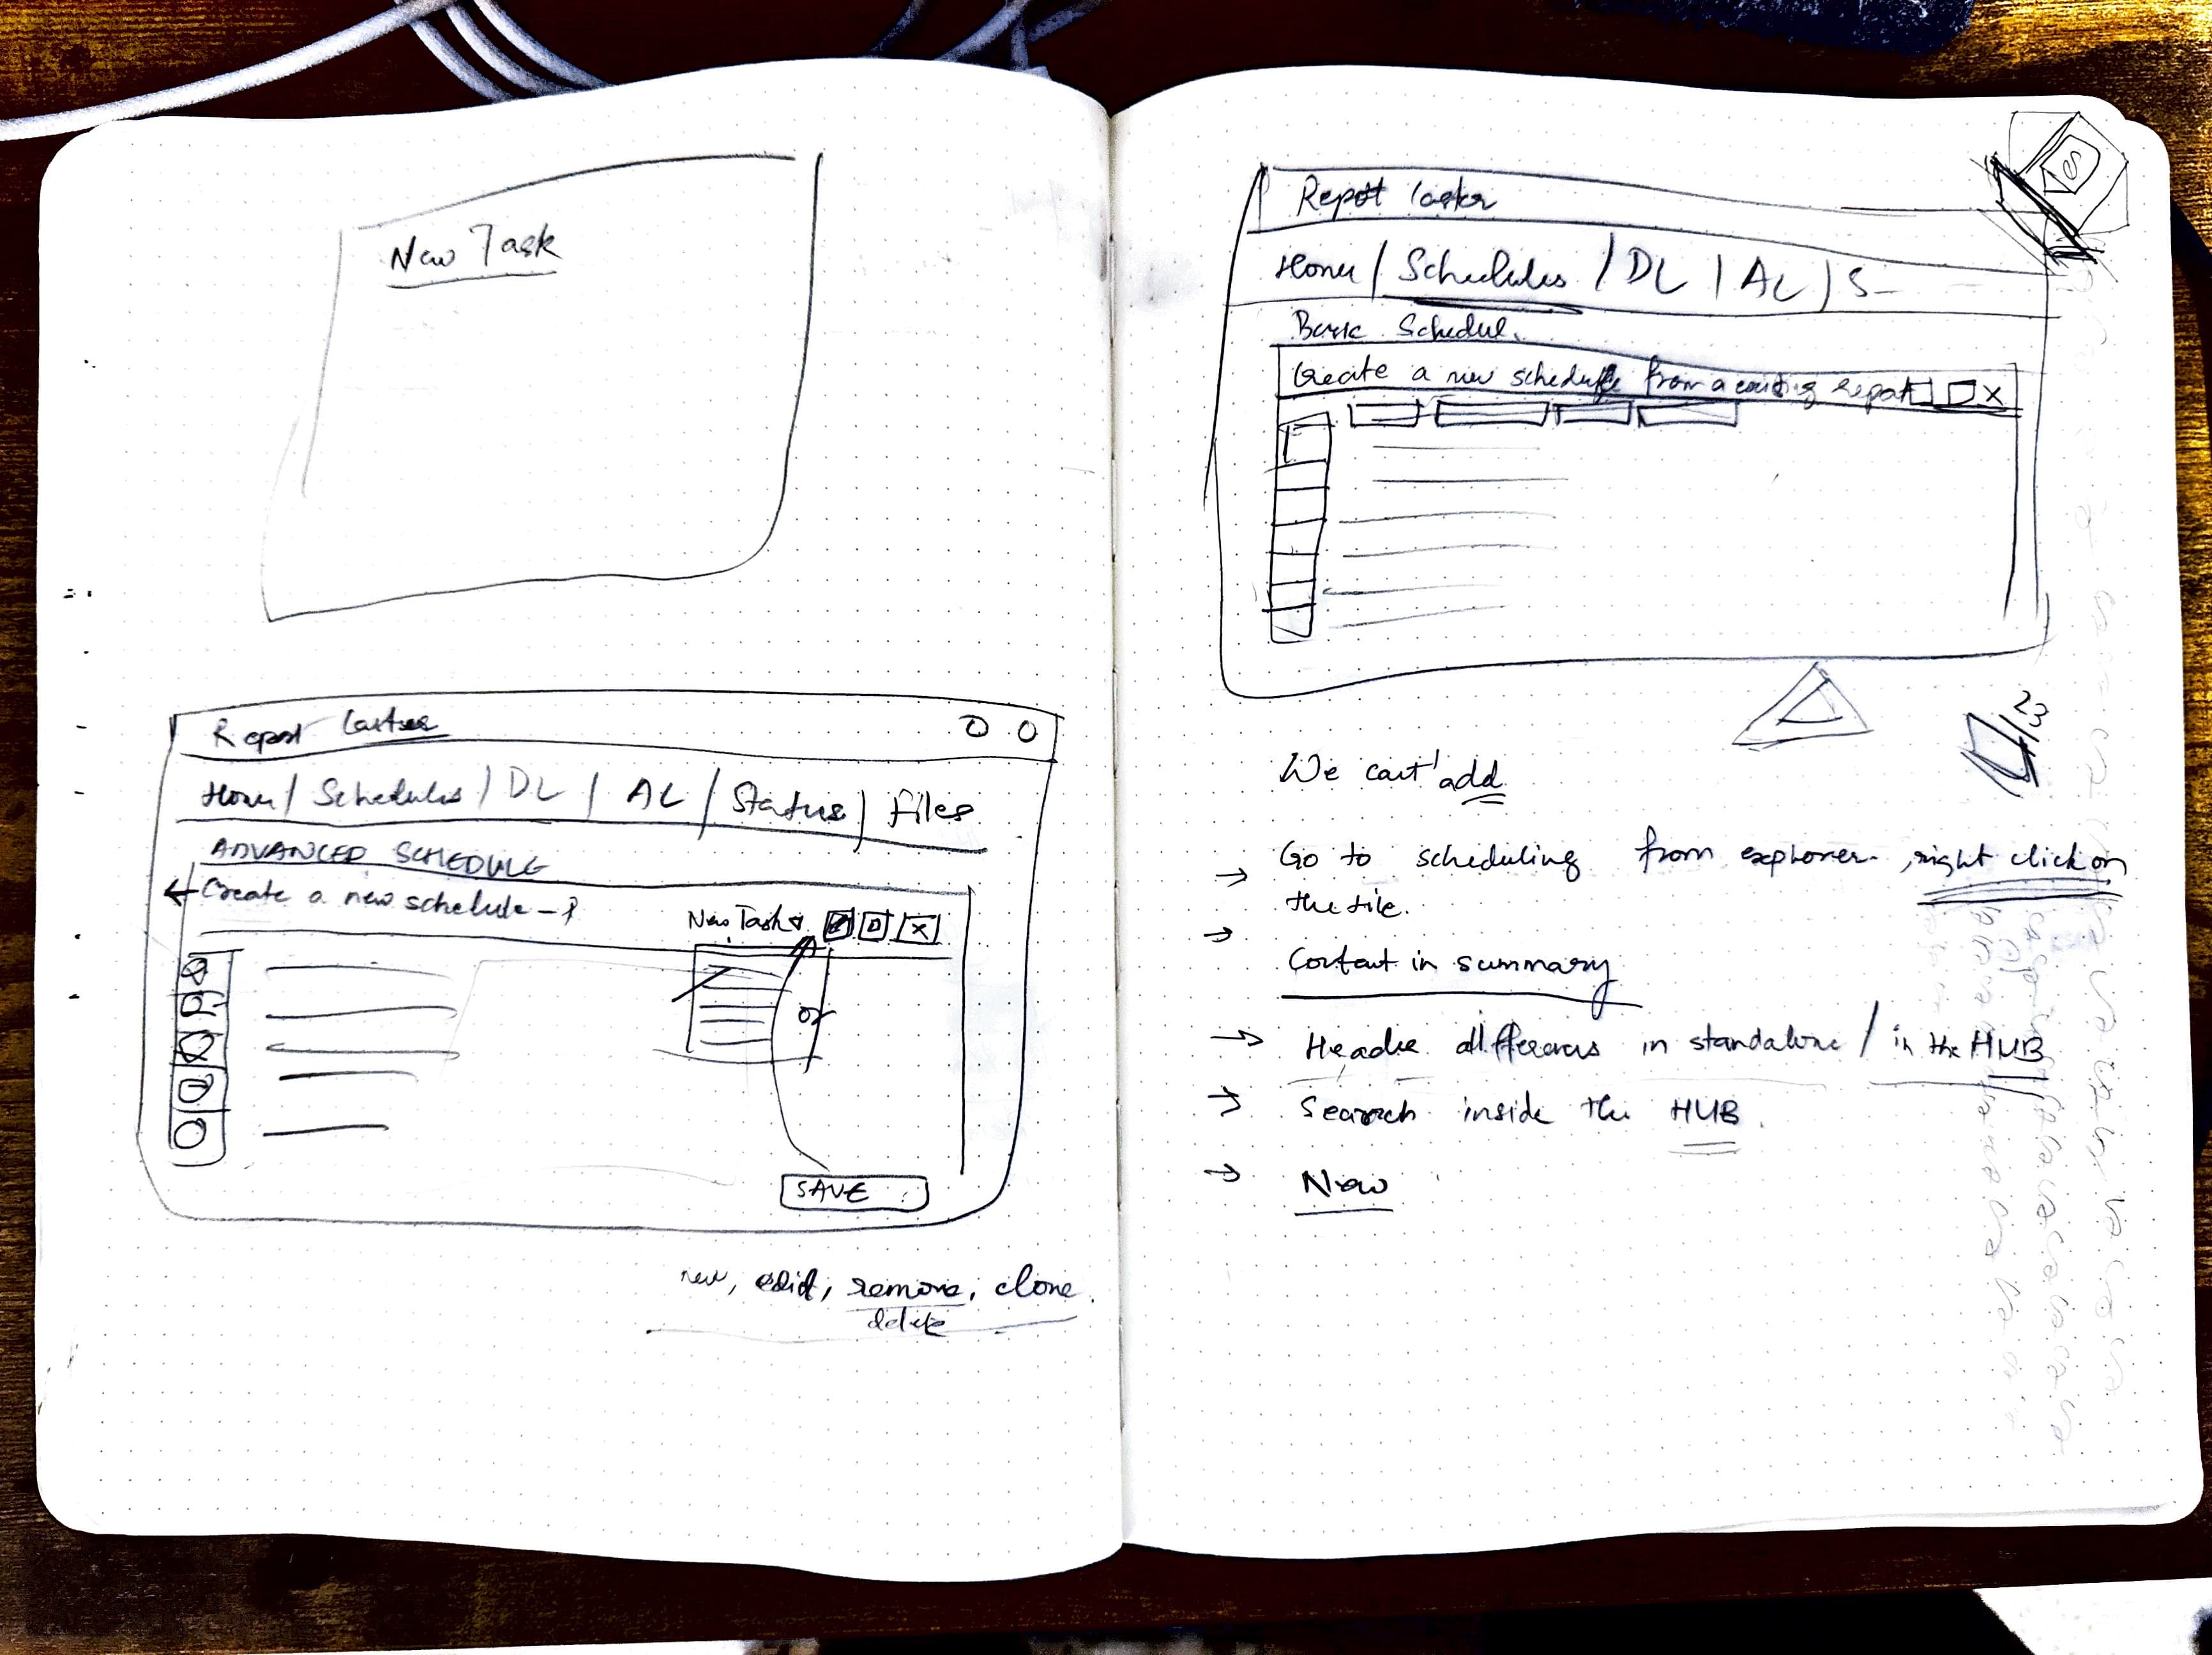 New Task
Report Caster
Home / Schedules / DL / AL / Status / files
ADVANCED SCHEDULE
← Create a new schedule -
New Task
X
or
SAVE
new, edit, remove, clone.
delete
Report Caster
Home / Schedules / DL / AL / S-
Basic Schedul.
Create a new schedule from a existing report X
23
We cant' add
→ Go to scheduling from explorer, right click on
the tile.
→
Content in summary
→ Header differences in standalone / in the HUB
→ Search inside the HUB.
→ New